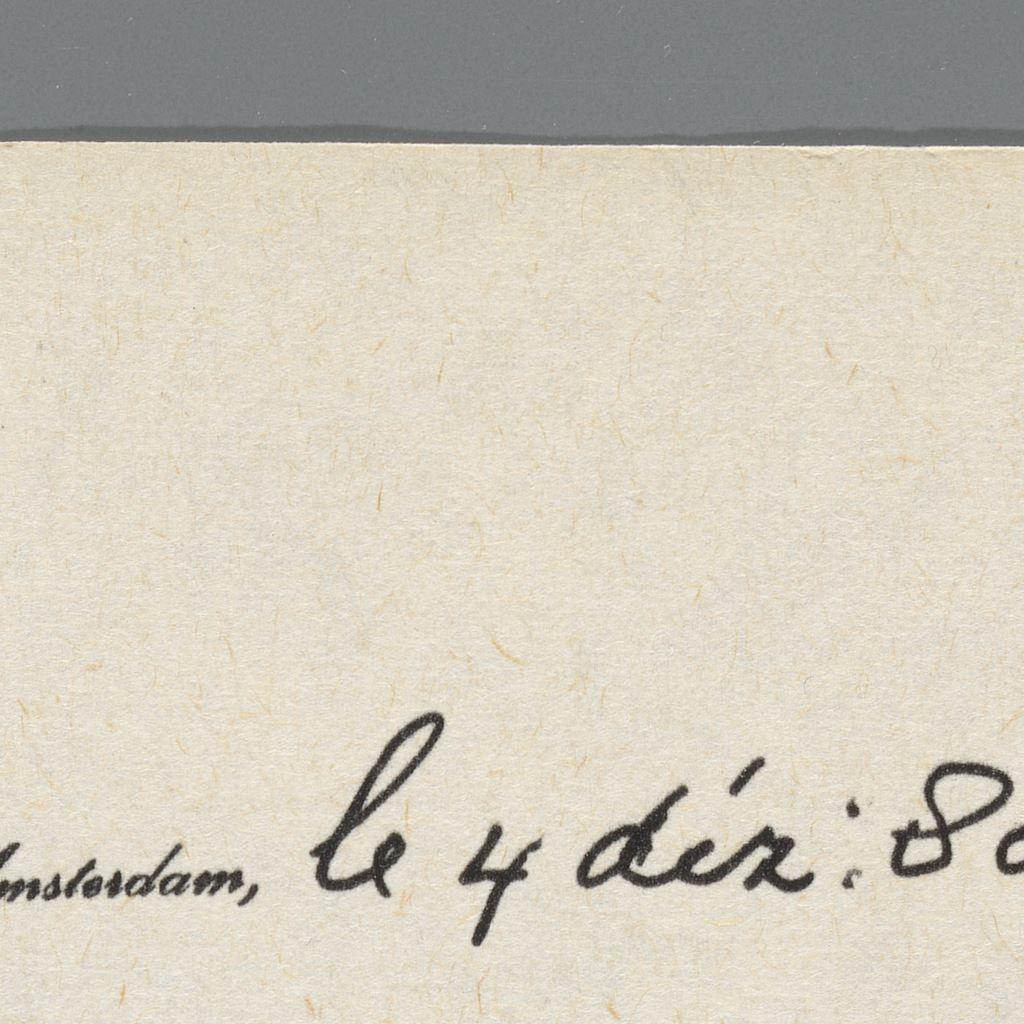 Amsterdam, le 4 déz: 8